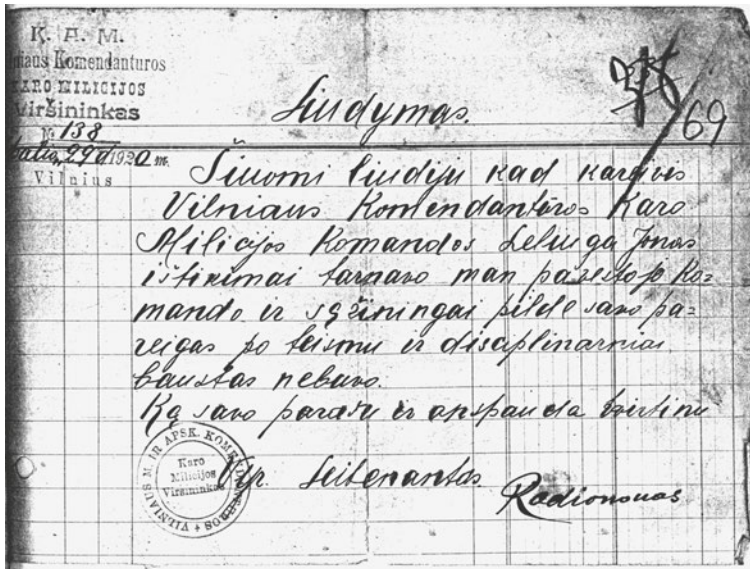 K. A. M.
niaus Komendanturos
KARO MILICIJOS
Viršininkas
№ 138
29 d. 1920 m.
Vilnius
Liudymas.
69
Šiuomi liudiju kad kareivis
Vilniaus Komendantūros Karo
Milicijos Komandos Leliuga Jonas
ištikimai tarnavo man pavestoje Ko=
mando ir sąžiningai pildė savo pa=
reigas po teismu ir disciplinarniai
baustas nebuvo.
Ką savo parašu ir antspauda tvirtinu
VILNIAUS M. IR APSK. KOMENDANTUROS
Karo
Milicijos
Viršininkas
Vyr. Leitenantas
Radionovas